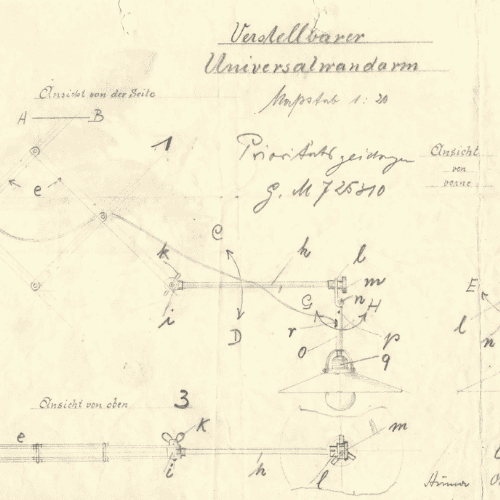 Verstellbarer
Universalwandarm
Maßstab 1:20
Ansicht von der Seite
A B
1
Ansicht
von
vorne
e
C
k
h
l
m
n
E
G
H
i
D
r
o
p
q
l
n
Ansicht von oben
3
e
k
m
i
h
l